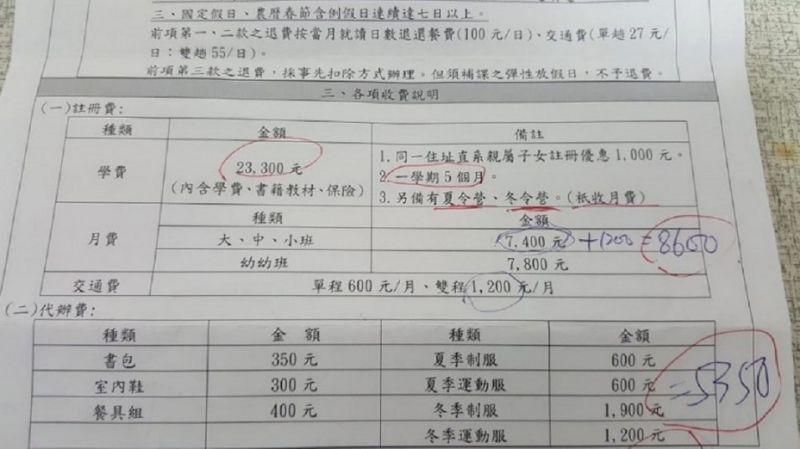 三、國定假日、農曆春節含例假日連續達七日以上。
前項第一、二款之退費按當月就讀日數退還餐費(100元/日)、交通費(單趟27元/日：雙趟55/日)。
前項第三款之退費，採事先扣除方式辦理。但須補課之彈性放假日，不予退費。
三、各項收費說明
(一)註冊費:
種類 金額 備註
學費 23,300元 (內含學費、書籍教材、保險)
1.同一住址直系親屬子女註冊優惠1,000元。
2.一學期5個月。
3.另備有夏令營、冬令營。(祇收月費)
月費 種類 金額
大、中、小班 7,400元 +1200 = 8600
幼幼班 7,800元
交通費 單程600元/月、雙程1,200元/月
(二)代辦費:
種類 金額 種類 金額
書包 350元 夏季制服 600元
室內鞋 300元 夏季運動服 600元 =5350
餐具組 400元 冬季制服 1,900元
冬季運動服 1,200元